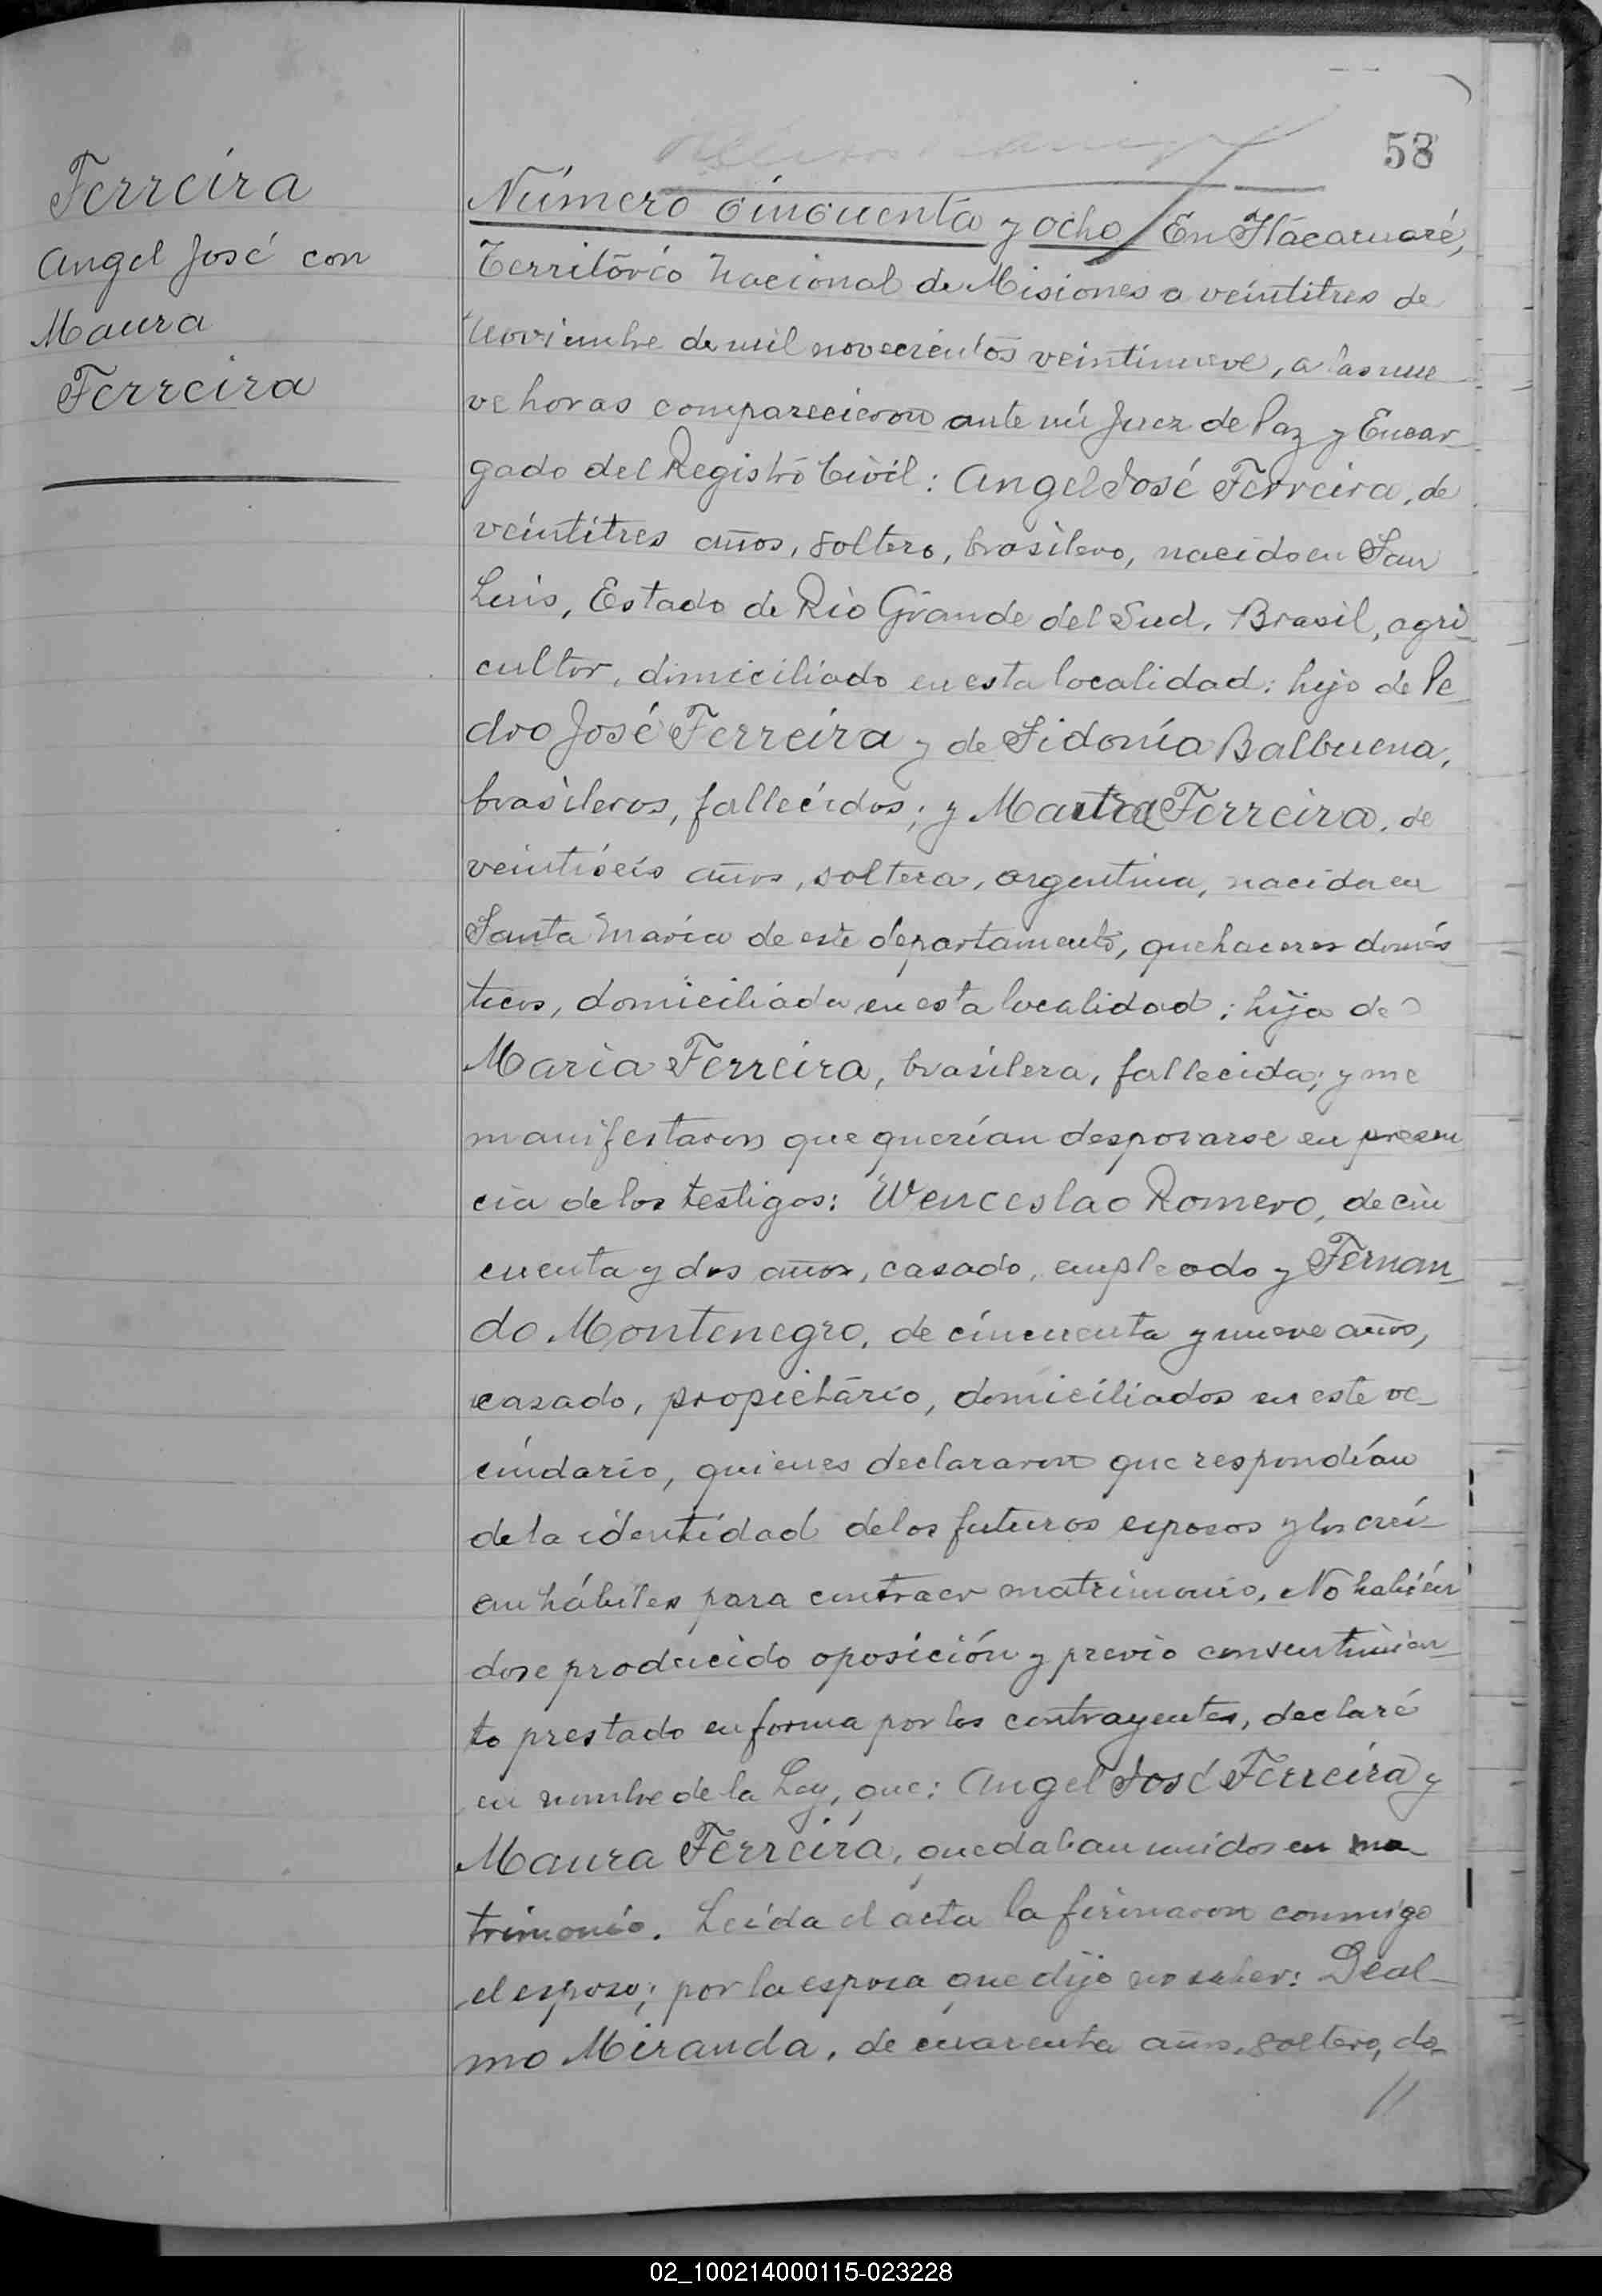 58
Ferreira
Angel José con
Maura
Ferreira
Número cincuenta y ocho En Itacaruaré,
Territorio Nacional de Misiones a veintitres de
Noviembre de mil novecientos veintinueve, a las nue
ve horas comparecieron ante mí Juez de Paz y Encar_
gado del Registro Civil: Angel José Ferreira, de
veintitres años, soltero, brasilero, nacido en San
Luis, Estado de Rio Grande del Sud, Brasil, agri_
cultor, domiciliado en esta localidad; hijo de Pe_
dro José Ferreira y de Sidonía Balbuena,
brasileros, fallecidos; y Maura Ferreira, de
veintiseis años, soltera, argentina, nacida en
Santa María de este departamento, quehaceres domés_
ticos, domiciliada en esta localidad; hija de
Maria Ferreira, brasilera, fallecida; y me
manifestaron que querían desposarse en presen
cia de los testigos: Wenceslao Romero, de cin_
cuenta y dos años, casado, empleado y Fernan_
do Montenegro, de cincuenta y nueve años,
casado, propietario, domiciliados en este ve_
cindario, quienes declararon que respondían
de la identidad de los futuros esposos y los creí_
an hábiles para contraer matrimonio. No habién
dose producido oposición y previo consentimien_
to prestado en forma por los contrayentes, declaré
en nombre de la Ley, que: Angel José Ferreira y
Maura Ferreira, quedaban unidos en ma_
trimonio. Leída el acta la firmaron conmigo
el esposo; por la esposa que dijo no saber: Deal_
mo Miranda, de cuarenta años, soltero, do_
//
02_100214000115-023228